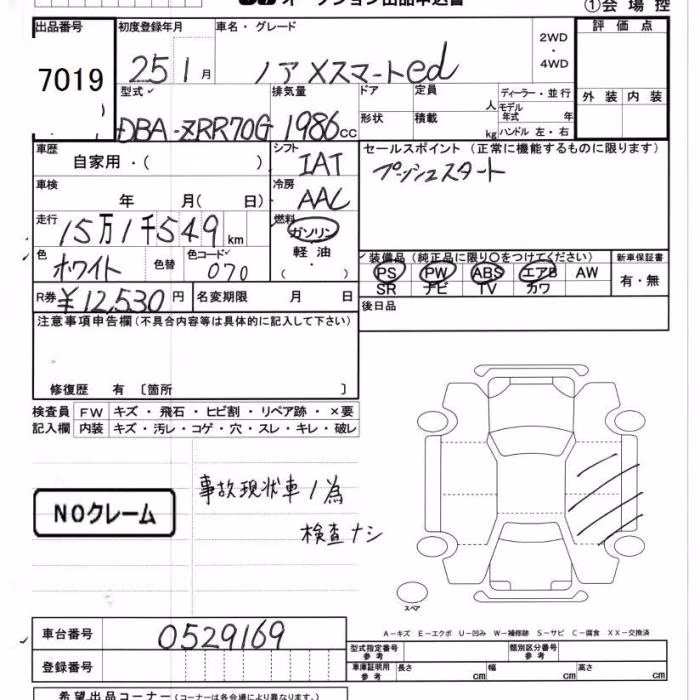 オークション出品申込書
①会場控
出品番号 初度登録年月 車名・グレード 評価点
7019 25 1月 ノア Xスマートed 2WD・4WD
型式 排気量 ドア 定員 人 ディーラー・並行 外装 内装
DBA-ZRR70G 1986cc 形状 積載 kg モデル年式 年 ハンドル 左・右
車歴 シフト セールスポイント(正常に機能するものに限ります)
自家用・( ) IAT プッシュスタート
車検 冷房
年 月(日) AAC
走行 燃料
15万1千549km ガソリン
軽油
・( )
色 色替 色コード 装備品(純正品に限り〇をつけてください) 新車保証書
ホワイト 070 PS PW ABS エアB AW 有・無
SR ナビ TV カワ
R券 ¥12,530円 名変期限 月 日 後日品
注意事項申告欄(不具合内容等は具体的に記入して下さい)
修復歴 有 〔箇所 〕
検査員 FW キズ・飛石・ヒビ割・リペア跡・×要
記入欄 内装 キズ・汚レ・コゲ・穴・スレ・キレ・破レ
事故現状車ノ為
NOクレーム
検査ナシ
スペア
A-キズ E-エクボ U-凹み W-補修跡 S-サビ C-腐食 XX-交換済
車台番号 0529169
型式指定番号 参考 類別区分番号 参考
登録番号 車庫証明用 参考 長さ cm 幅 cm 高さ cm
希望出品コーナー(コーナーは各会場により異なります。)